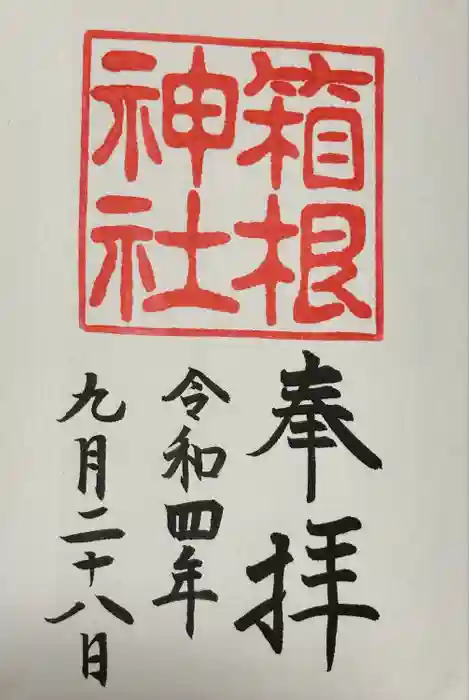 箱根
神社
奉拝
令和四年
九月二十八日